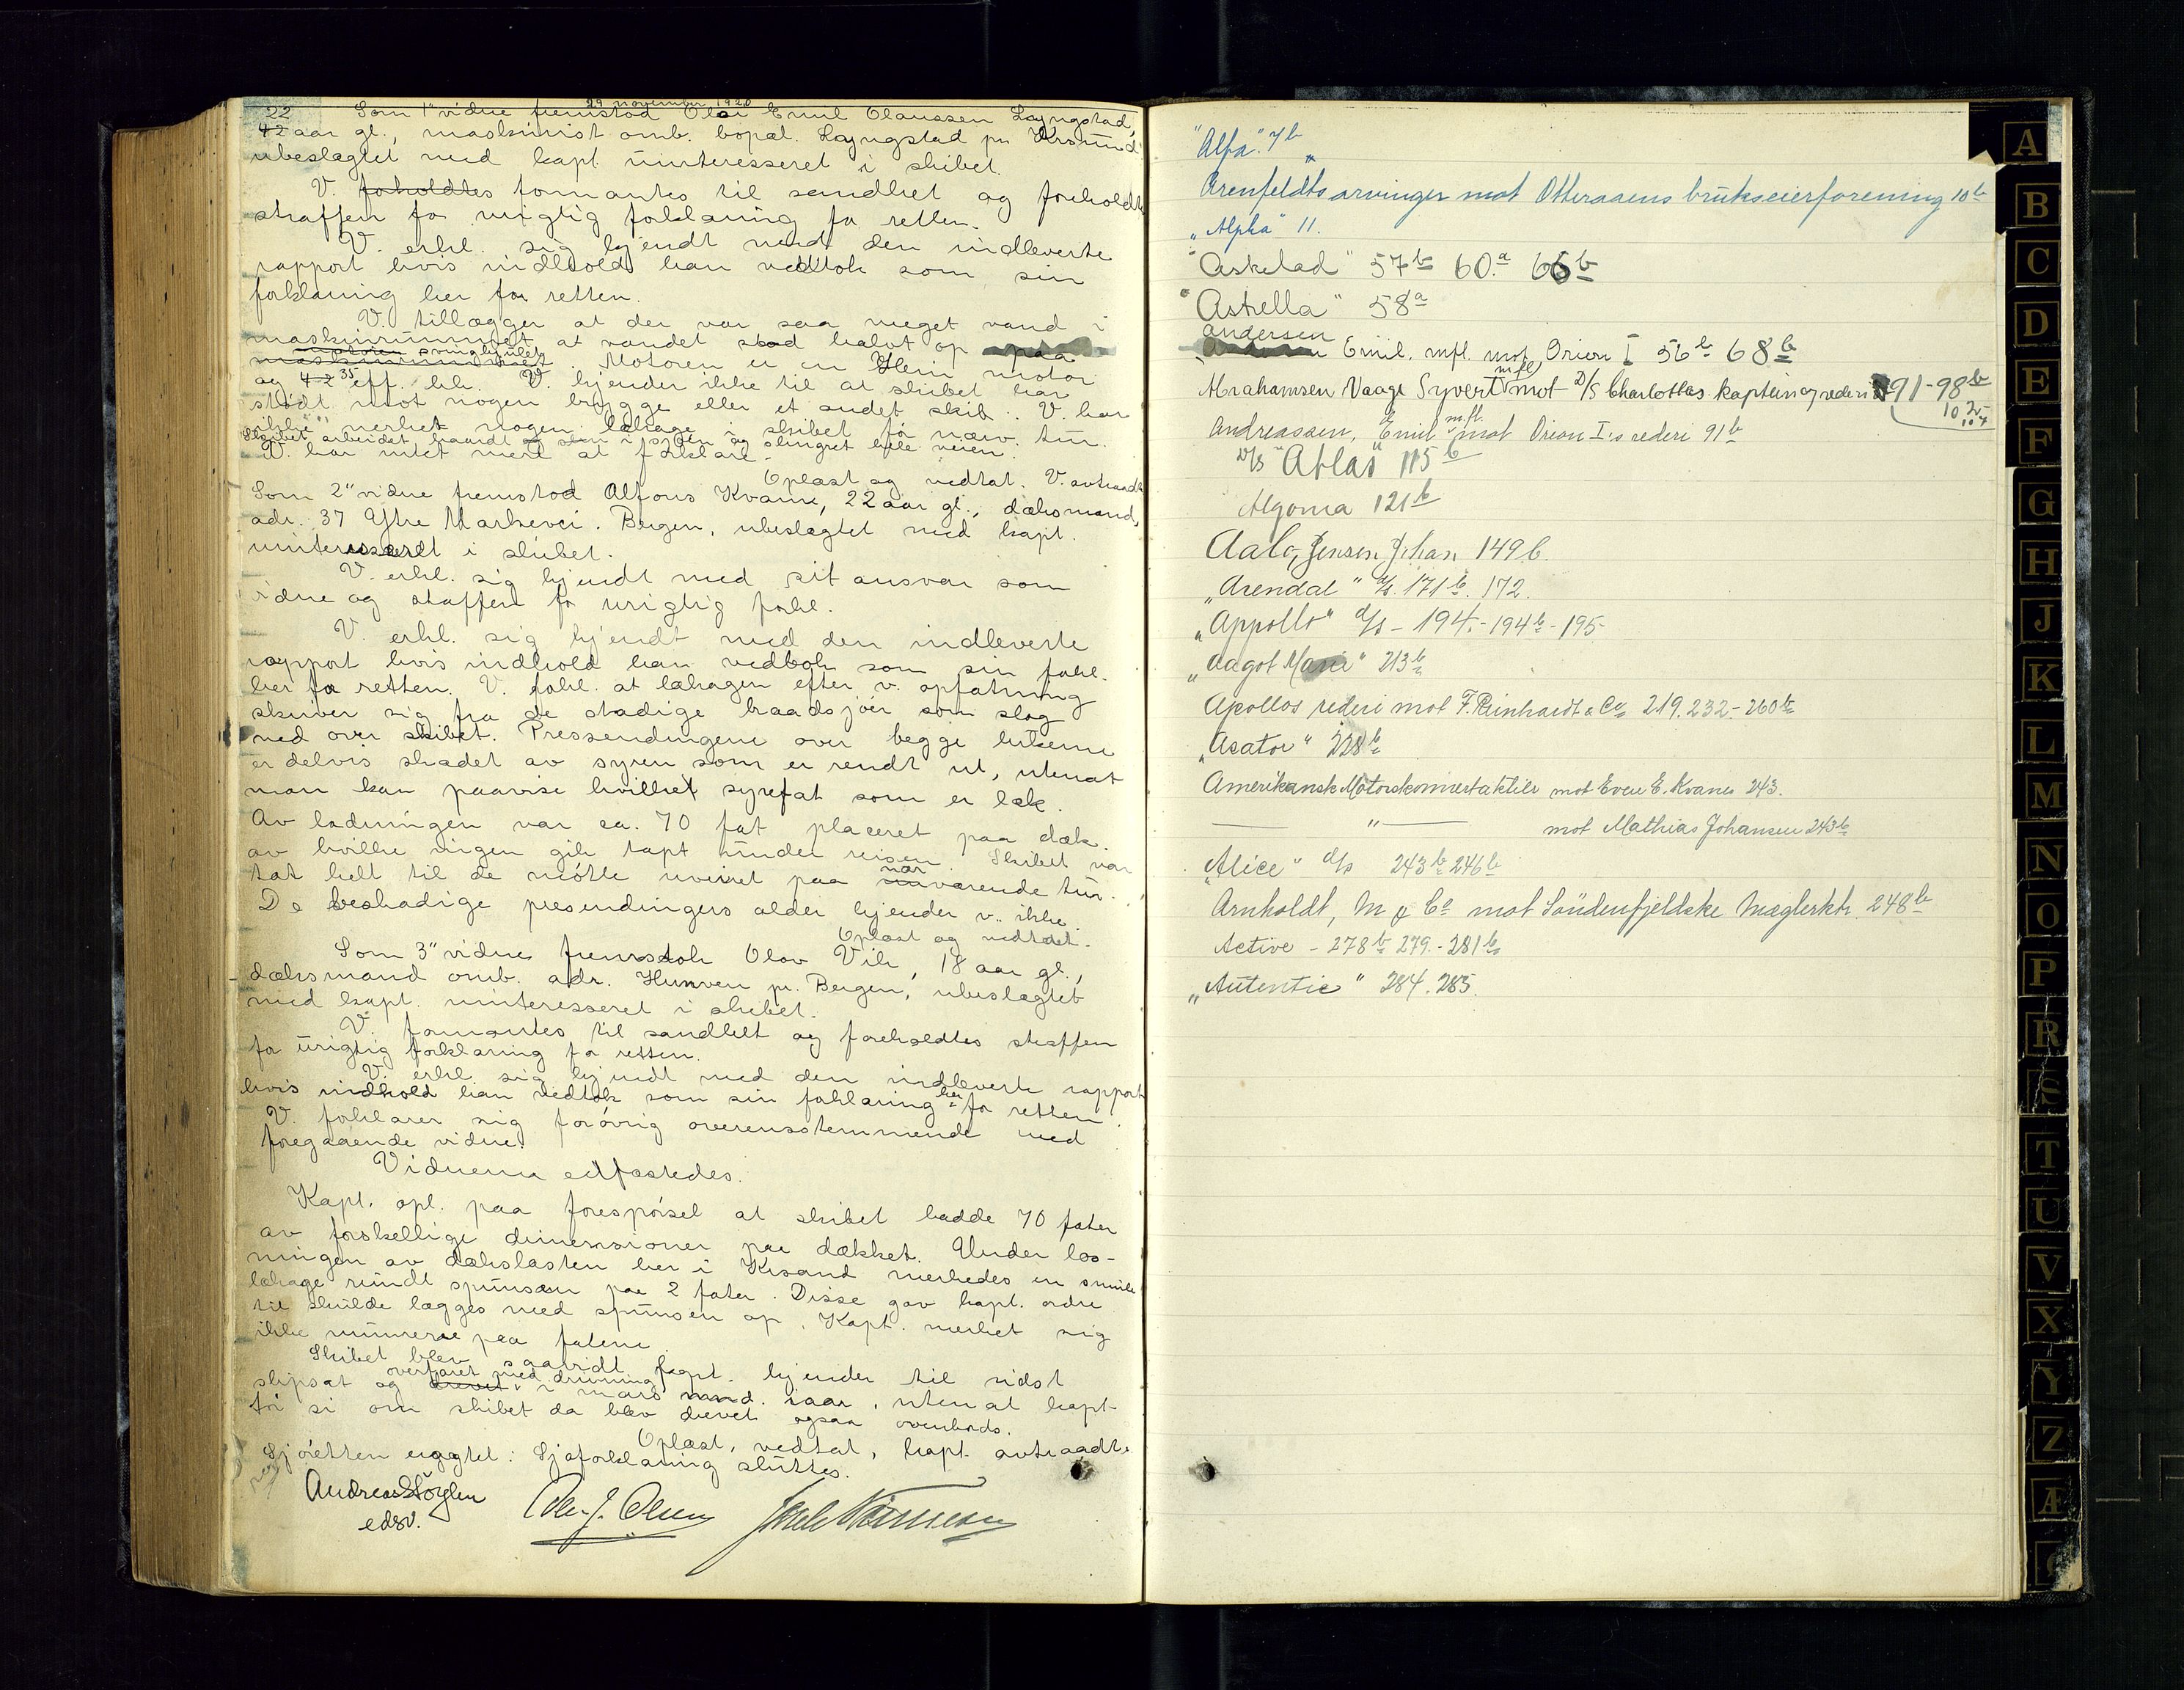 29 november 1920
22 Som 1" vidne fremstod Olai Emil Olaussen Lyngstad,
42 aar gl., maskinist omb. bopæl. Lyngstad pr. Krsund
ubeslagtet med kapt. uinteresseret i skibet.
V. foholdtes formantes til sandhet og foreholdt
straffen for urigtig forklaring for retten.
V. erkl. sig kjendt med den indleverte
rapport hvis indhold han vedtok som sin
forklaring her for retten.
V. tillægger at der var saa meget vand i
maskinrummet, at vandet stod halvt op paa
motoren svinghjulet
maskinrummet. Motoren er en Hein motor
og 42 35 eff. hk. V. kjender ikke til at skibet har
stødt mot nogen brygge eller et andet skib. V. har
ikke merket nogen lækage i skibet før næv. tur.
Skibet arbeidet haardt i sjøen og slingret hele veien.
V. har intet mere at forklare.
Oplæst og vedtat. V. avtraadt
Som 2" vidne fremstod Alfons Kvame, 22 aar gl., dæksmand,
adr. 37 Ytre Markevei. Bergen, ubeslagtet med kapt.
uinteresseret i skibet.
V. erkl. sig kjendt med sit ansvar som
vidne og straffen for urigtig forkl.
V. erkl. sig kjendt med den indleverte
rapport hvis indhold han vedtok som sin forkl.
her for retten. V. forkl. at lækagen efter v. opfatning
skriver sig fra de stadige braadsjøer som slog
ned over skibet. Pressendingene over begge lukerne
er delvis skadet av syren som er rendt ut, uten at
man kan paavise hvilket syrefat som er læk.
Av ladningen var ca. 70 fat placeret paa dæk.
av hvilke ingen gik tapt under reisen. Skibet var
tat helt til de møtte uveiret paa nærværende tur.
De beskadige presendingers alder kjender v. ikke.
Oplæst og vedtat.
Som 3" vidne fremstod Olav Vik, 18 aar gl.,
dæksmand omb. adr. Hunven pr. Bergen, ubeslagtet
med kapt. uinteresseret i skibet.
V. formantes til sandhet og foreholdtes straffen
for urigtig forklaring for retten.
V. erkl. sig kjendt med den indleverte rapport
hvis indhold han vedtok som sin forklaring her for retten.
V. forklarer sig forøvrig overensstemmende med
foregaaende vidne.
Vidnerne edfæstedes.
Kapt. opl. paa forespørsel at skibet hadde 70 fater
av forskellige dimensioner paa dækket. Under los-
ningen av dækslasten her i Krsand merkedes en smule
lækage rundt spunsen paa 2 fater. Disse gav kapt. ordre
til skulde lægges med spunsen op. Kapt. merket sig
ikke numrene paa fatene.
Skibet blev saavidt kapt. kjender til sidst
slipsat og drevet overfaret med drivning i mars mnd. iaar, uten at kapt
tør si om skibet da blev drevet ogsaa ovenbords.
Oplæst, vedtat, kapt. avtraadte.
Sjøretten eragtet: Sjøforklaring sluttes.
Andreas Støylen
edsv.
Ole J. Olsen
"Alfa" 7b
Arenfeldts arvinger mot Otteraaens brukseierforening 10b
"Alpha" 11.
"Askelad" 57b 60.a 66b
"Astrella" 58a
Andersen Emil. mfl. mot Orion I 56b 68b
Abrahamsen Vaage Syvert mfl mot D/S Charlottes kaptein og rederi 91-98b
Andreassen, Emil mfl. mot Orion I's rederi 91b
D/S "Atlas" 115b
Algoma 121b
Aalo, Jensen Johan 149b.
"Arendal" d/s. 171b. 172.
"Appollo" d/s - 194.- 194b - 195-
"Aagot Marie" 213b
Apollos rederi mot F. Reinhardt & Co 219. 232.- 260b
"Asator" 228b
Amerikansk Motorskonnertaktier mot Even E. Kvanes 243.
— " — mot Mathias Johansen 243b
"Alice" d/s 243b 246b
Arnholdt, M & Co mot Søndenfjeldske Mæglerktr. 248b
Active - 278b 279.- 281b
"Autentic" 284. 285.
A
B
C
D
E
F
G
H
J
K
L
M
N
O
P
R
S
T
U
V
X
Y
Z
Æ
Ø